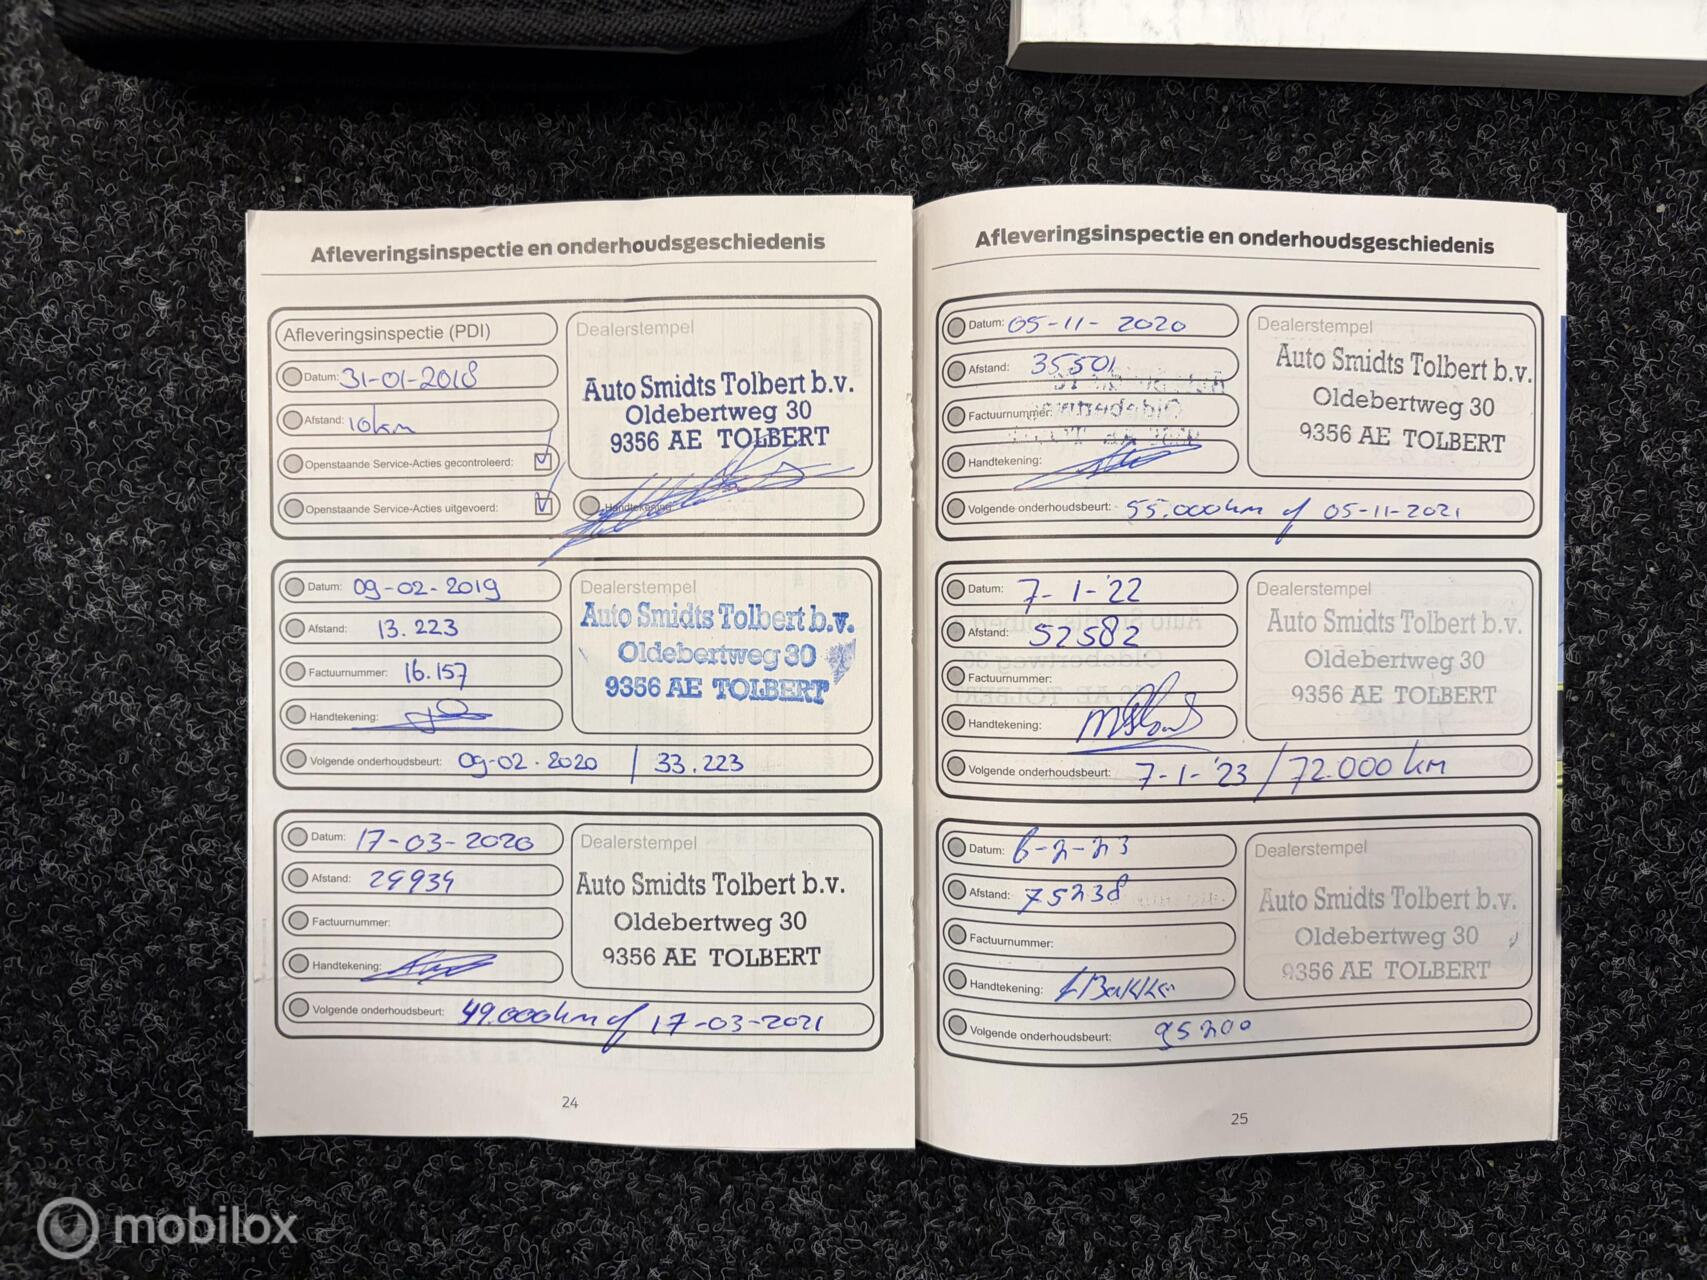 Afleveringsinspectie en onderhoudsgeschiedenis
Afleveringsinspectie (PDI)
Datum: 31-01-2018
Afstand: 10km
Openstaande Service-Acties gecontroleerd:
Openstaande Service-Acties uitgevoerd:
Dealerstempel
Auto Smidts Tolbert b.v.
Oldebertweg 30
9356 AE TOLBERT
Handtekening
Datum: 09-02-2019
Afstand: 13.223
Factuurnummer: 16.157
Handtekening:
Dealerstempel
Auto Smidts Tolbert b.v.
Oldebertweg 30
9356 AE TOLBERT
Volgende onderhoudsbeurt: 09-02-2020 / 33.223
Datum: 17-03-2020
Afstand: 29934
Factuurnummer:
Handtekening:
Dealerstempel
Auto Smidts Tolbert b.v.
Oldebertweg 30
9356 AE TOLBERT
Volgende onderhoudsbeurt: 49.000km of 17-03-2021
24
Afleveringsinspectie en onderhoudsgeschiedenis
Datum: 05-11-2020
Afstand: 35501
Factuurnummer:
Handtekening:
Dealerstempel
Auto Smidts Tolbert b.v.
Oldebertweg 30
9356 AE TOLBERT
Volgende onderhoudsbeurt: 55.000km of 05-11-2021
Datum: 7-1-'22
Afstand: 52582
Factuurnummer:
Handtekening:
Dealerstempel
Auto Smidts Tolbert b.v.
Oldebertweg 30
9356 AE TOLBERT
Volgende onderhoudsbeurt: 7-1-'23 / 72.000 km
Datum: 6-2-23
Afstand: 75238
Factuurnummer:
Handtekening:
Dealerstempel
Auto Smidts Tolbert b.v.
Oldebertweg 30
9356 AE TOLBERT
Volgende onderhoudsbeurt: 95200
25
mobilox